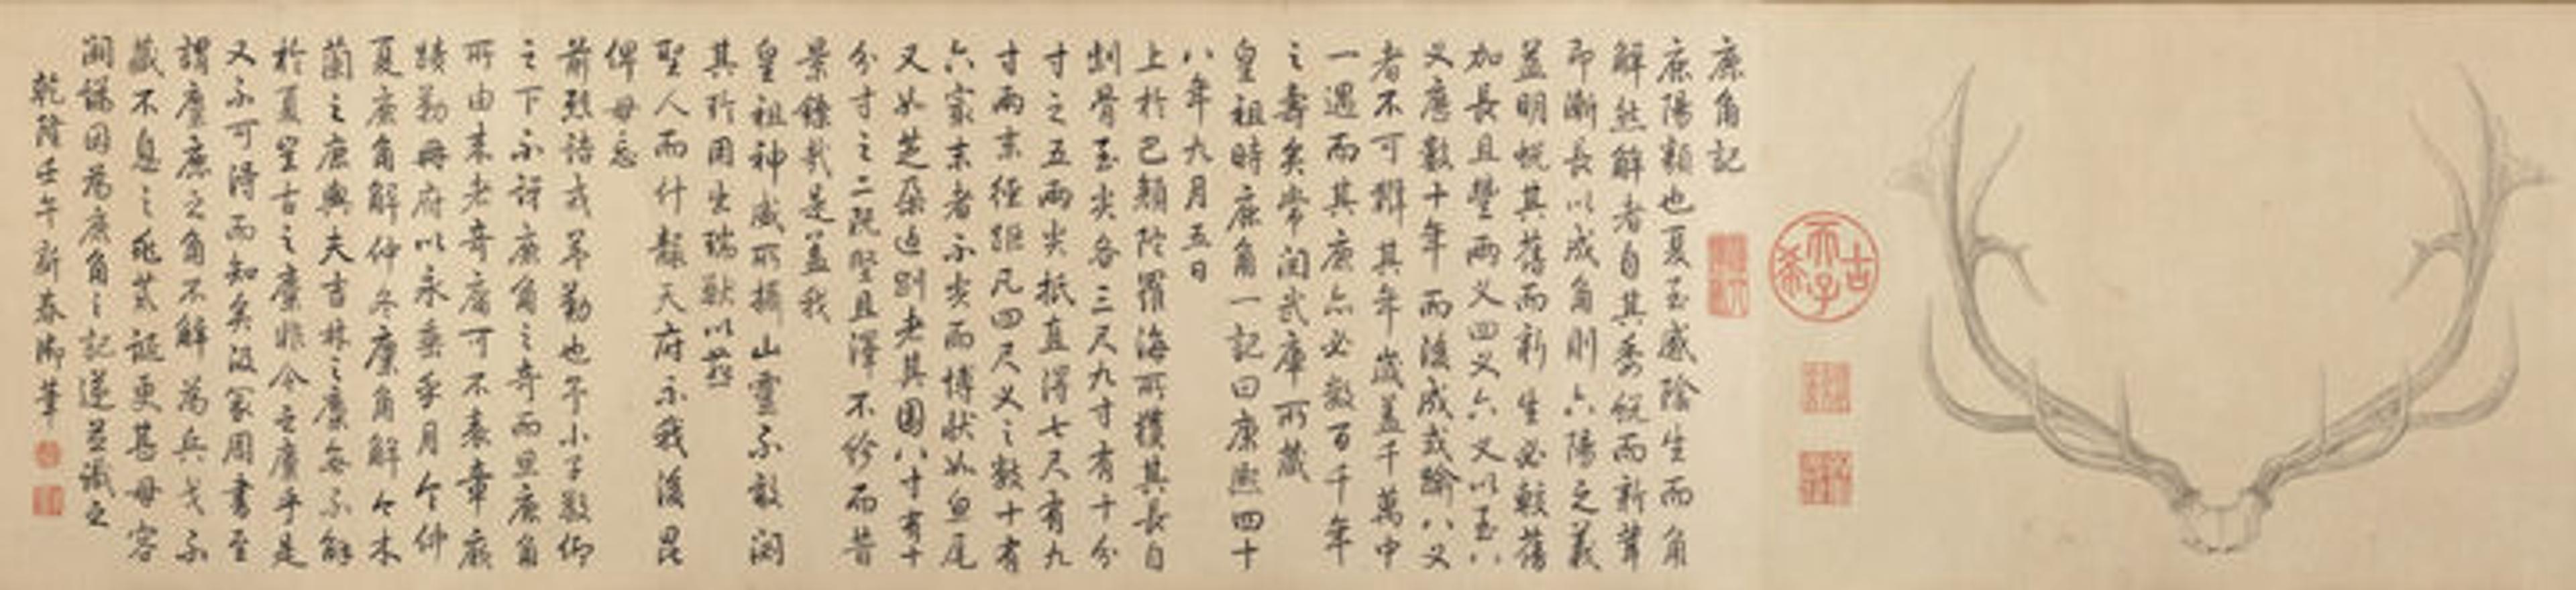 古稀天子
鹿角記
鹿陽類也夏至感陰生而角
解然解者自其委蛻而新茸
即漸長以成角則亦陽之義
蓋明蛻其舊而新生必較舊
加長且豐兩叉四叉六叉以至八
叉應數十年而後成或踰八叉
者不可辨其年歲蓋千萬中
一遇而其鹿亦必數百千年
之壽矣常閱武庫所藏
皇祖時鹿角一記曰康熙四十
八年九月五日
上於巴顏陀羅海所獲其長自
骨至尖各三尺九寸有十分
寸之五兩尖抵直得七尺有九
寸兩末徑距凡四尺叉之數十有
六冣末者不尖而博狀如魚尾
又如芝朶近者其圍八寸有十
分寸之二既堅且澤不紾而昔
景鑠哉是蓋我
皇祖神威所攝山靈不敢閟
其珍用生瑞獸以
聖人而什襲天府示我後昆
俾毋忘
前烈詰戎苐勤也予小子敬仰
之下不訝鹿角之奇而思鹿角
所由來者奇庸可不表章厥
蹟勒冊府以永垂乎月令仲
夏鹿角解仲冬麋角解今木
蘭之鹿與夫吉林之麋無不解
於夏豈古之麋非今之麋乎是
又不可得而知矣汲冢周書至
謂麋鹿之角不解為兵戈不
藏不息之兆荒誕更甚毋容
因為鹿角之記遂並識之
乾隆壬午新春御筆